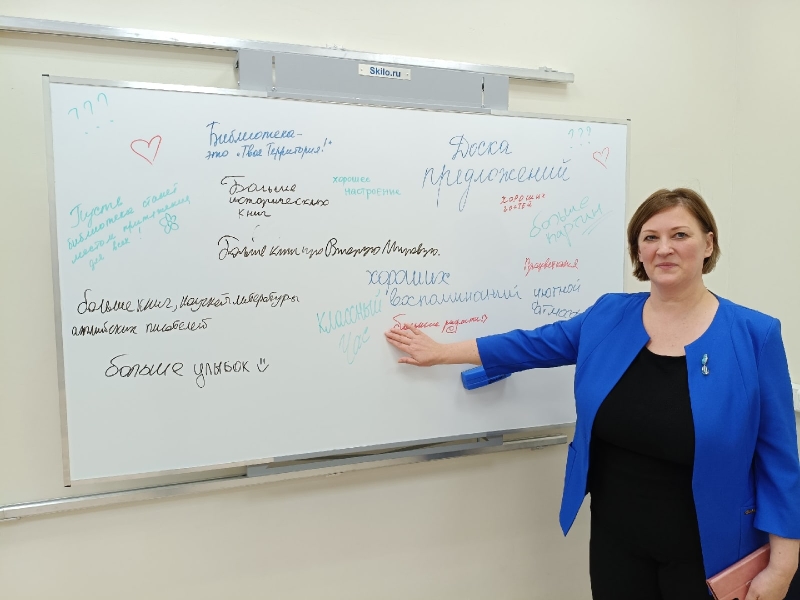 Skilo.ru
???
...
Библиотека -
это "Твоя Территория!"
Доска
предложений
???
...
Пусть
библиотека станет
местом притяжения
для всех
Больше
исторических
книг
хорошее
настроение
хороших
больше
картин
Больше книг про Вторую Мировую.
хороших
воспоминаний
уютной
Больше книг, научной литературы
английских писателей
Классный
час
Больше улыбок